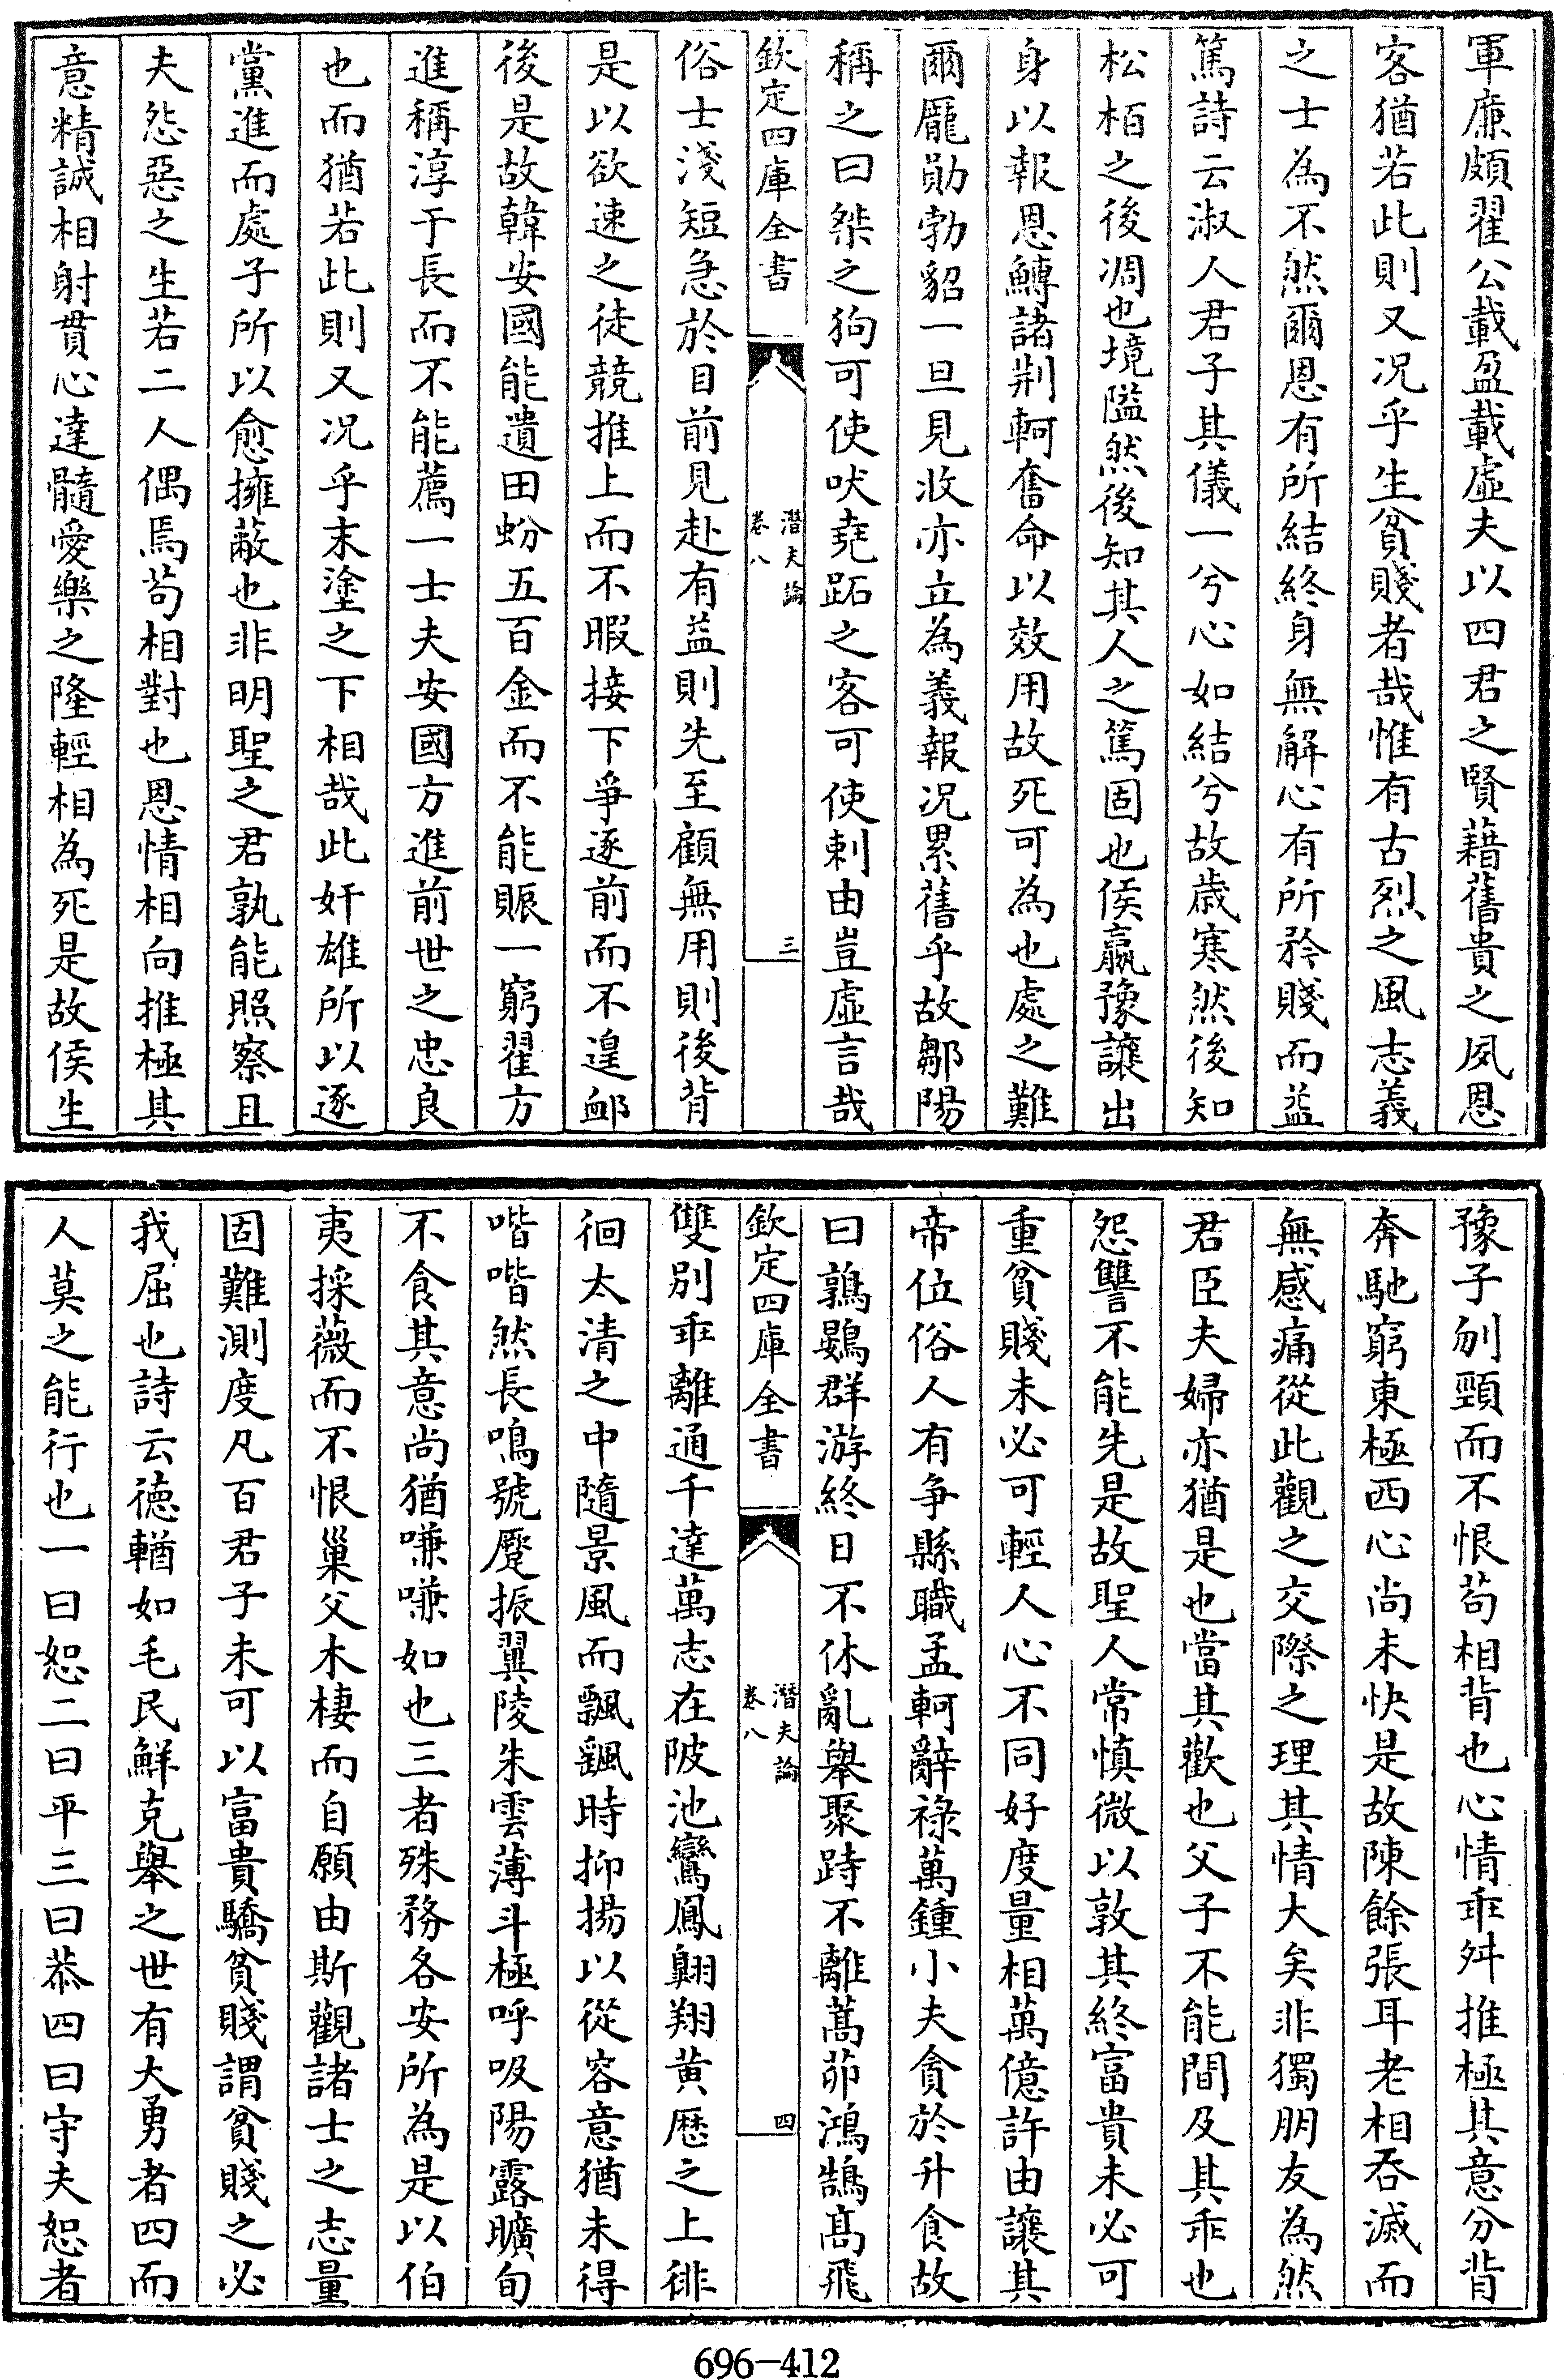 軍廉頗翟公載盈載虛夫以四君之賢藉舊貴之夙恩
客猶若此則又况乎生貧賤者哉惟有古烈之風志義
之士為不然爾恩有所結終身無解心有所矜賤而益
篤詩云淑人君子其儀一兮心如結兮故歳寒然後知
松栢之後凋也境隘然後知其人之篤固也侯嬴豫讓出
身以報恩鱄諸荆軻奮命以效用故死可為也處之難
爾龎勛勃貂一旦見收亦立為義報况累舊乎故鄒陽
稱之曰桀之狗可使吠堯跖之客可使刺由豈虛言哉
欽定四庫全書
潛夫論
卷八
三
俗士淺短急於目前見赴有益則先至顧無用則後背
是以欲速之徒競推上而不暇接下爭逐前而不遑䘏
後是故韓安國能遺田蚡五百金而不能賑一窮翟方
進稱淳于長而不能薦一士夫安國方進前世之忠良
也而猶若此則又况乎末塗之下相哉此奸雄所以逐
黨進而處子所以愈擁蔽也非明聖之君孰能照察且
夫怨惡之生若二人偶焉苟相對也恩情相向推極其
意精誠相射貫心達髓愛樂之隆輕相為死是故侯生
豫子刎頸而不恨苟相背也心情乖舛推極其意分背
奔馳窮東極西心尚未快是故陳餘張耳老相吞滅而
無感痛從此觀之交際之理其情大矣非獨朋友為然
君臣夫婦亦猶是也當其歡也父子不能間及其乖也
怨讐不能先是故聖人常慎微以敦其終富貴未必可
重貧賤未必可輕人心不同好度量相萬億許由讓其
帝位俗人有争縣職孟軻辭祿萬鍾小夫貪於升食故
曰鶉鷃群游終日不休亂舉聚跱不離蒿茆鴻鵠髙飛
欽定四庫全書
潛夫論
卷八
四
雙别乖離通千達萬志在陂池鸞鳳翺翔黄歴之上徘
徊太清之中隨景風而飄颻時抑揚以從容意猶未得
喈喈然長鳴號蹷振翼陵朱雲薄斗極呼吸陽露曠旬
不食其意尚猶嗛嗛如也三者殊務各安所為是以伯
夷採薇而不恨巢父木棲而自願由斯觀諸士之志量
固難測度凡百君子未可以富貴驕貧賤謂貧賤之必
我屈也詩云德輶如毛民鮮克舉之世有大勇者四而
人莫之能行也一曰恕二曰平三曰恭四曰守夫恕者
696-412